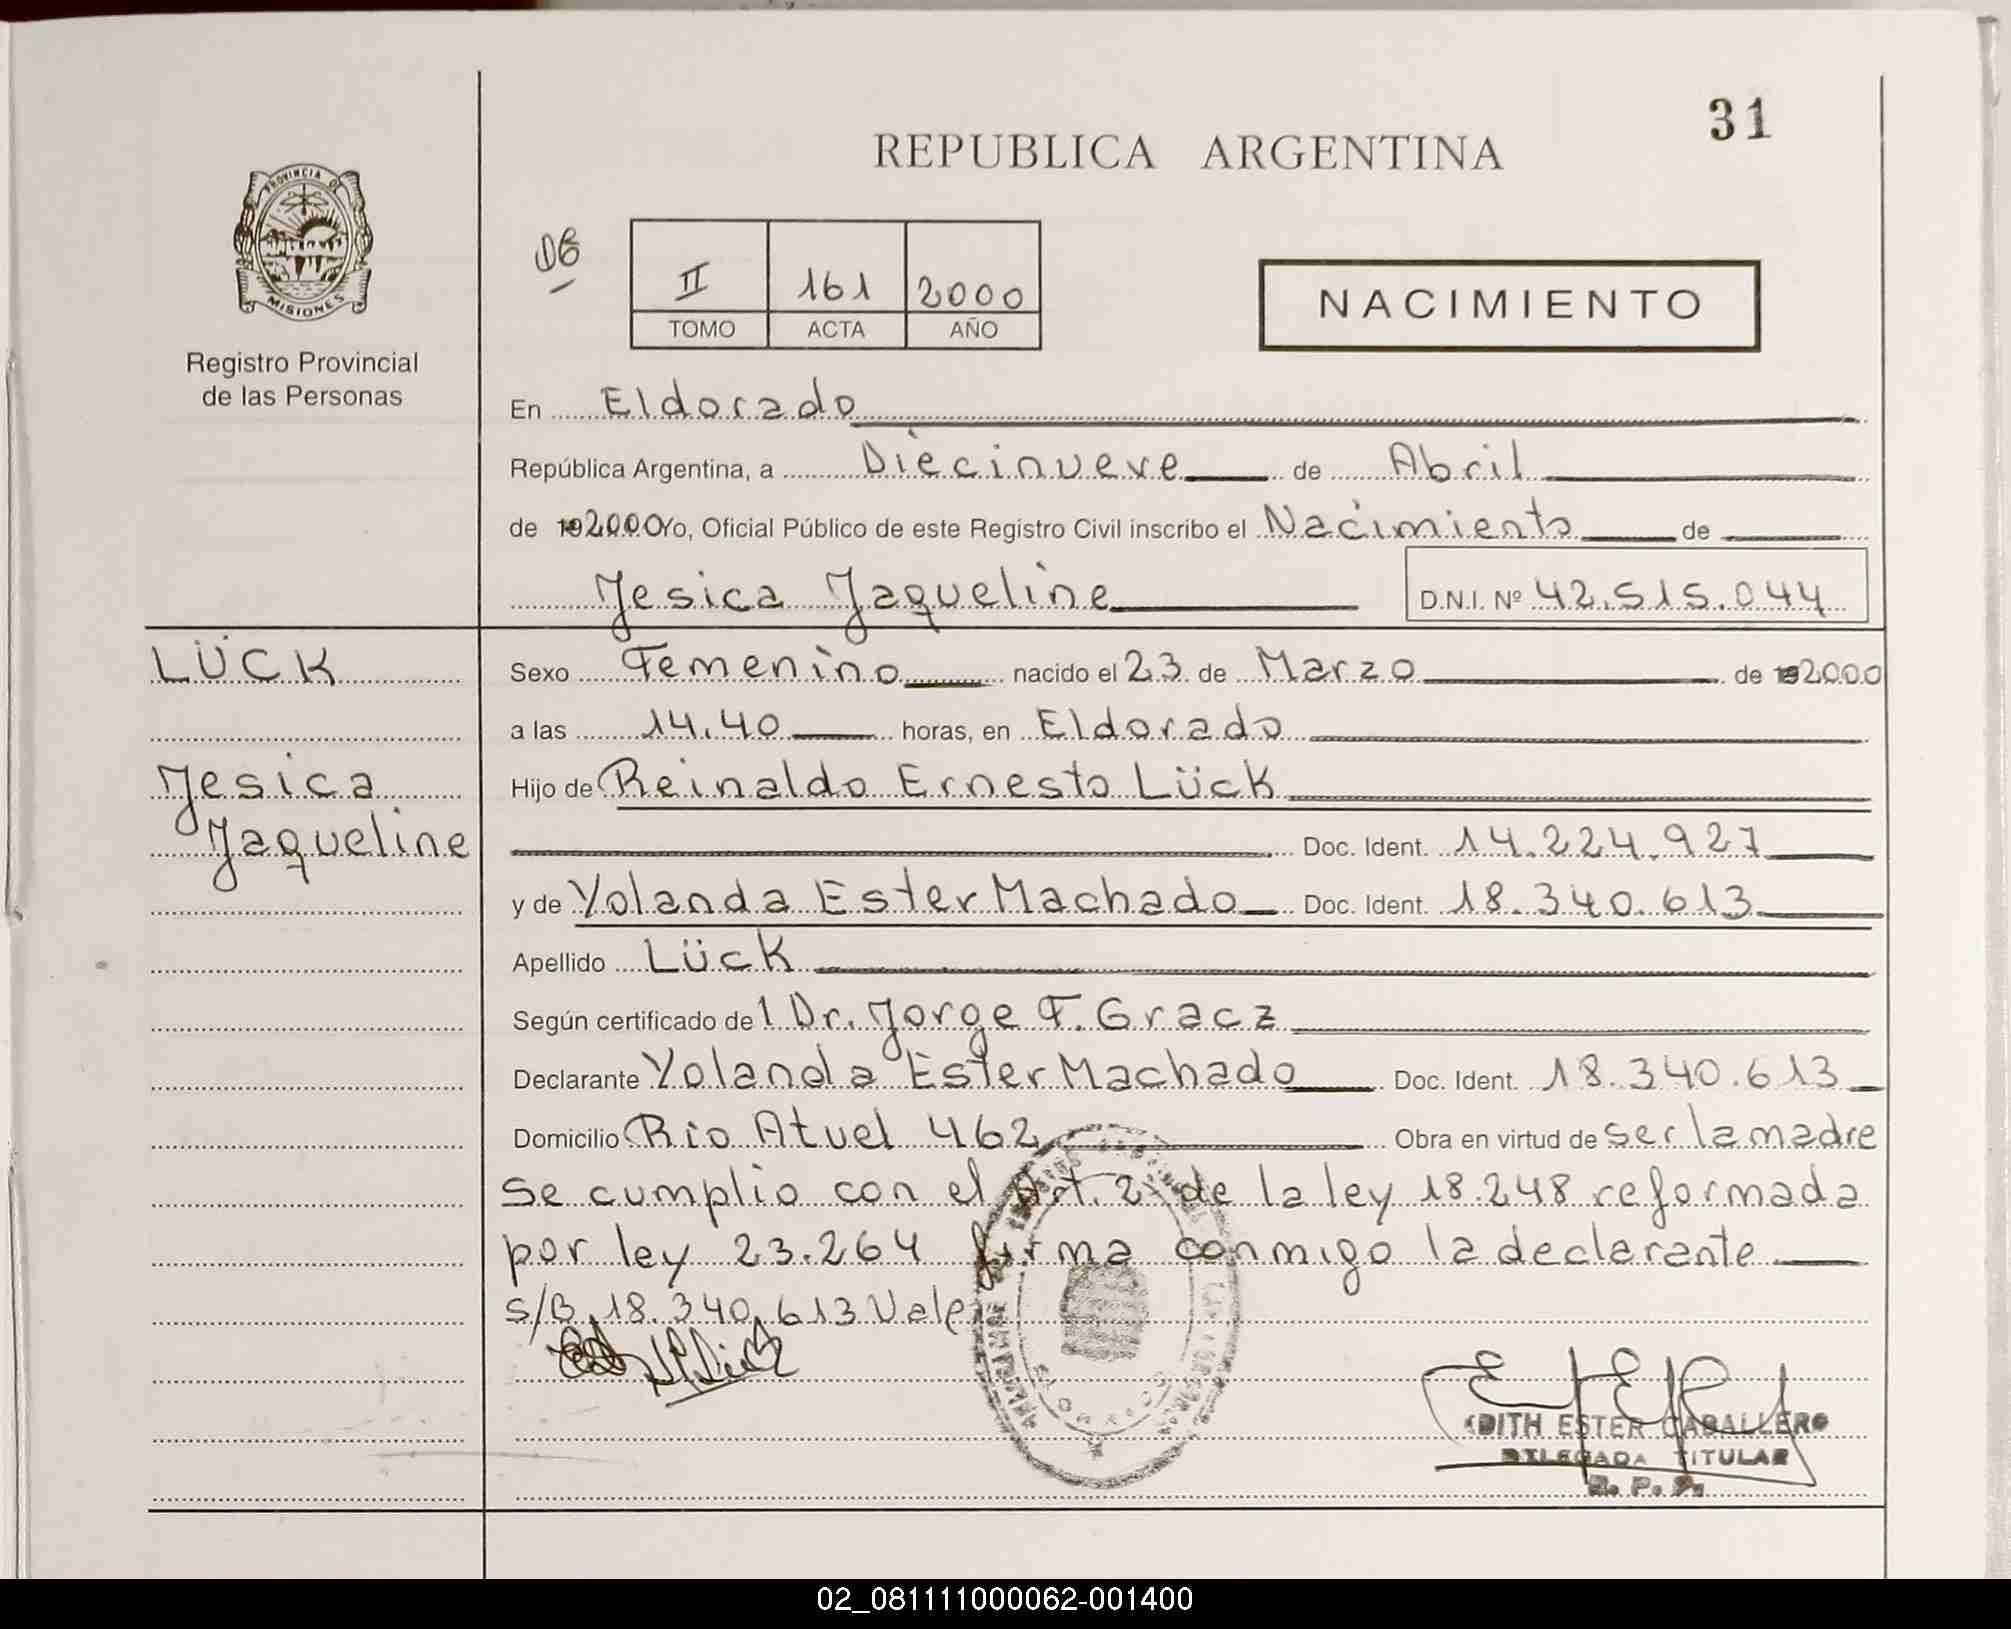 31
REPUBLICA ARGENTINA
PROVINCIA DE
MISIONES
Registro Provincial
de las Personas
DB
II 161 2000
TOMO ACTA AÑO
NACIMIENTO
En Eldorado
República Argentina, a Diecinueve de Abril
de 192000 Yo, Oficial Público de este Registro Civil inscribo el Nacimiento de
Jesica Jaqueline D.N.I. Nº 42.515.044
LÜCK
Jesica
Jaqueline
Sexo Femenino nacido el 23 de Marzo de 192000
a las 14.40 horas, en Eldorado
Hijo de Reinaldo Ernesto Lück
Doc. Ident. 14.224.927
y de Yolanda Ester Machado Doc. Ident. 18.340.613
Apellido Lück
Según certificado del Dr. Jorge F. Gracz
Declarante Yolanda Ester Machado Doc. Ident. 18.340.613
Domicilio Rio Atuel 462 Obra en virtud de ser la madre
Se cumplio con el Art. 2 de la ley 18.248 reformada
por ley 23.264 firma conmigo la declarante
s/B 18.340.613 Vale
EDITH ESTER CABALLERO
DELEGADA TITULAR
R. P. P.
02_081111000062-001400